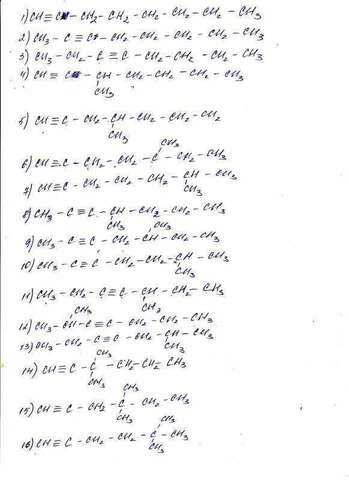 1) CH≡C - CH2 - CH2 - CH2 - CH2 - CH2 - CH3
2) CH3 - C ≡ C - CH2 - CH2 - CH2 - CH2 - CH3
3) CH3 - CH2 - C ≡ C - CH2 - CH2 - CH2 - CH3
4) CH ≡ C - CH - CH2 - CH2 - CH2 - CH3
CH3
5) CH ≡ C - CH2 - CH - CH2 - CH2 - CH2
CH3
CH3
6) CH ≡ C - CH2 - CH2 - C - CH2 - CH3
7) CH ≡ C - CH2 - CH2 - CH2 - CH - CH3
CH3
8) CH3 - C ≡ C - CH - CH2 - CH2 - CH3
CH3 CH3
9) CH3 - C ≡ C - CH2 - CH - CH2 - CH3
10) CH3 - C ≡ C - CH2 - CH2 - CH - CH3
CH3
11) CH3 - CH2 - C ≡ C - CH - CH2 - CH3
CH3 CH3
12) CH3 - CH - C ≡ C - CH2 - CH2 - CH3
13) CH3 - CH2 - C ≡ C - CH2 - CH - CH3
CH3 CH3
14) CH ≡ C - C - CH2 - CH2 - CH3
CH3
CH3
15) CH ≡ C - CH2 - C - CH2 - CH3
CH3
CH3
16) CH ≡ C - CH2 - CH2 - C - CH3
CH3